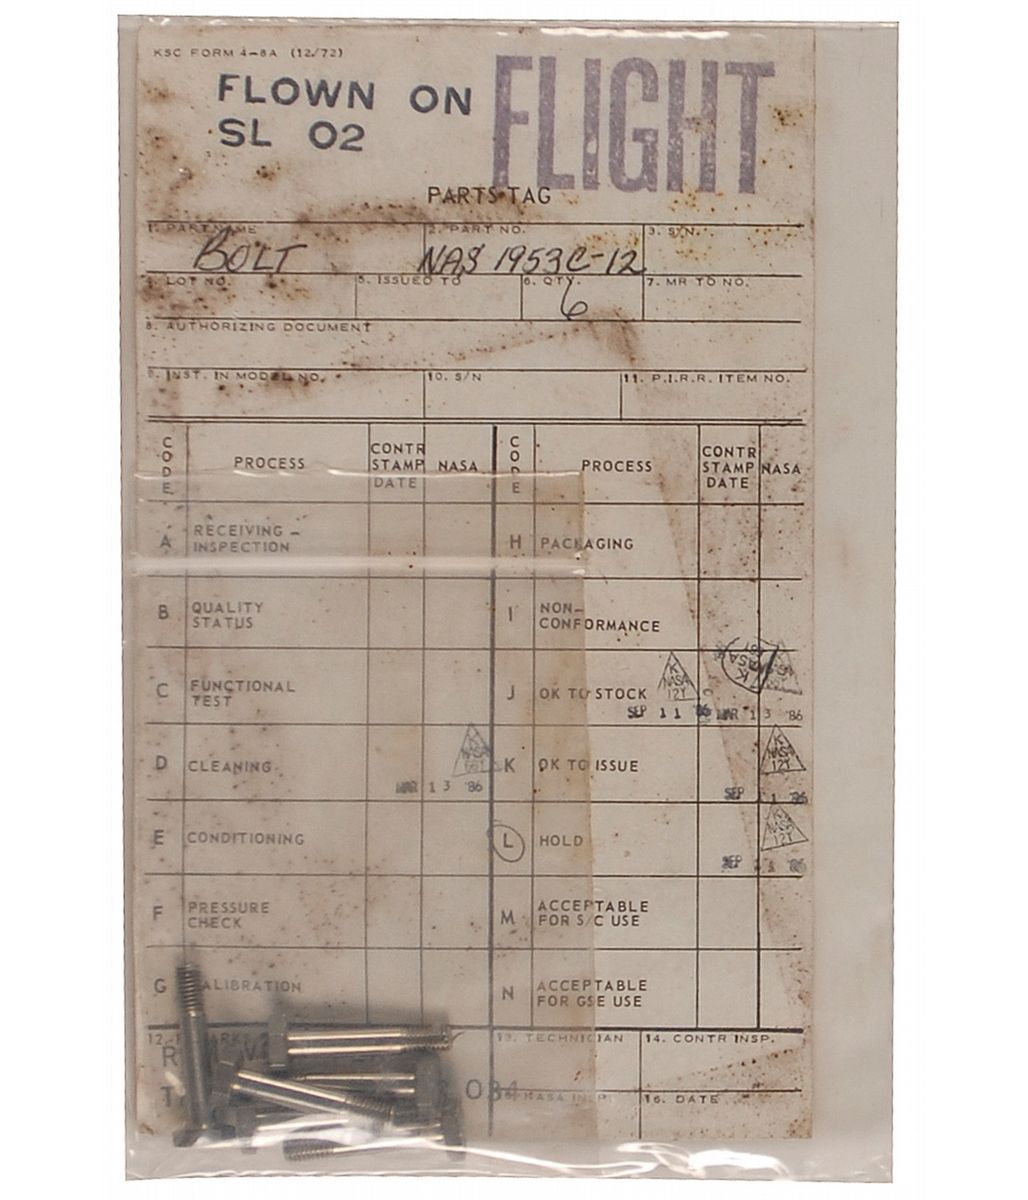 KSC FORM 4-8A (12/72)
FLOWN ON
SL 02
FLIGHT
PARTS TAG
1. PART NAME 2. PART NO. 3. S/N.
BOLT NAS 1953C-12
4. LOT NO. 5. ISSUED TO 6. QTY. 7. MR TO NO.
6
8. AUTHORIZING DOCUMENT
9. INST. IN MODEL NO. 10. S/N 11. P.I.R.R. ITEM NO.
CODE PROCESS CONTR STAMP DATE NASA CODE PROCESS CONTR STAMP DATE NASA
A RECEIVING - INSPECTION H PACKAGING
B QUALITY STATUS I NON-CONFORMANCE
C FUNCTIONAL TEST J OK TO STOCK K NASA 12Y SEP 11 86 K NASA MAR 13 '86
D CLEANING MAR 13 '86 K NASA K OK TO ISSUE K NASA 12Y SEP 11 86
E CONDITIONING L HOLD K NASA 12Y SEP 86
F PRESSURE CHECK M ACCEPTABLE FOR S/C USE
G CALIBRATION N ACCEPTABLE FOR GSE USE
12. REMARKS 13. TECHNICIAN 14. CONTR INSP.
034
15. NASA INSP. 16. DATE